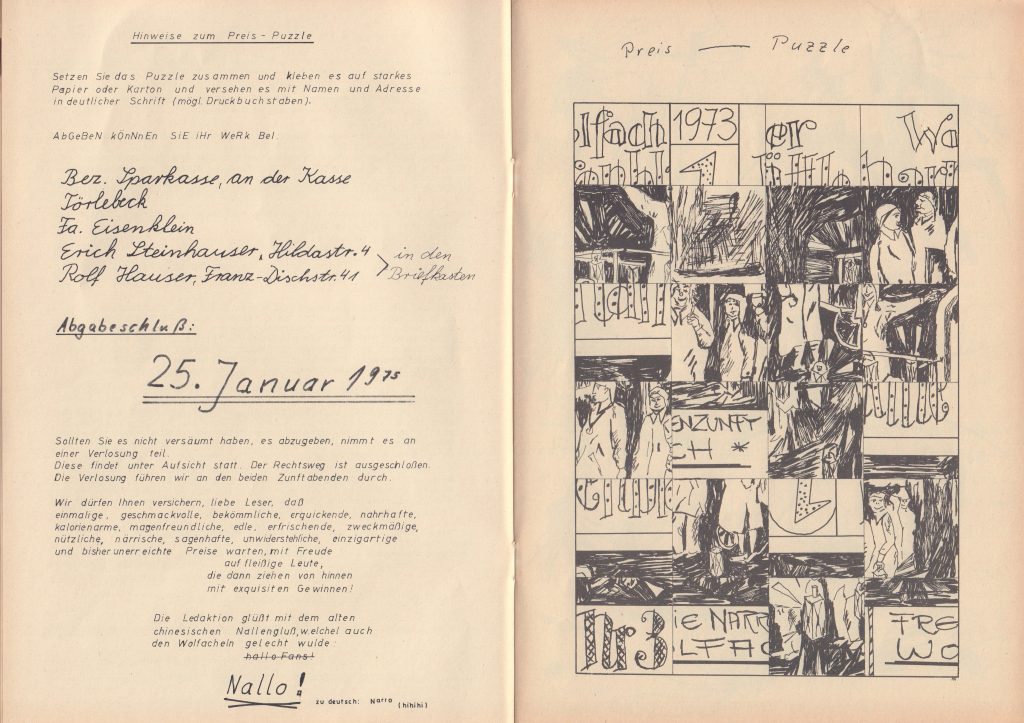 Hinweise zum Preis - Puzzle
Setzen Sie das Puzzle zusammen und kleben es auf starkes
Papier oder Karton und versehen es mit Namen und Adresse
in deutlicher Schrift (mögl. Druckbuchstaben).
AbGeBeN kÖNnNEn SiE iHr WeRk BeI:
Bez. Sparkasse, an der Kasse
Törlebeck
Fa. Eisenklein
Erich Steinhauser, Hildastr. 4
Rolf Hauser, Franz-Dischstr. 41
in den
Briefkasten
Abgabeschluß:
25. Januar 1975
Sollten Sie es nicht versäumt haben, es abzugeben, nimmt es an
einer Verlosung teil.
Diese findet unter Aufsicht statt. Der Rechtsweg ist ausgeschloßen.
Die Verlosung führen wir an den beiden Zunftabenden durch.
Wir dürfen Ihnen versichern, liebe Leser, daß
einmalige, geschmackvolle, bekömmliche, erquickende, nahrhafte,
kalorienarme, magenfreundliche, edle, erfrischende, zweckmäßige,
nützliche, närrische, sagenhafte, unwiderstehliche, einzigartige
und bisher unerreichte Preise warten, mit Freude
auf fleißige Leute,
die dann ziehen von hinnen
mit exquisiten Gewinnen!
Die Ledaktion glüßt mit dem alten
chinesischen Nallengluß, welchel auch
den Wolfacheln gelecht wulde:
hallo Fans!
Nallo!
zu deutsch: Narro (hihihi)
Preis — Puzzle
olfach
1973
er
Wo
1
ENZUNFT
CH *
Nr 3
IE NARR
LFAC
FRE
WO